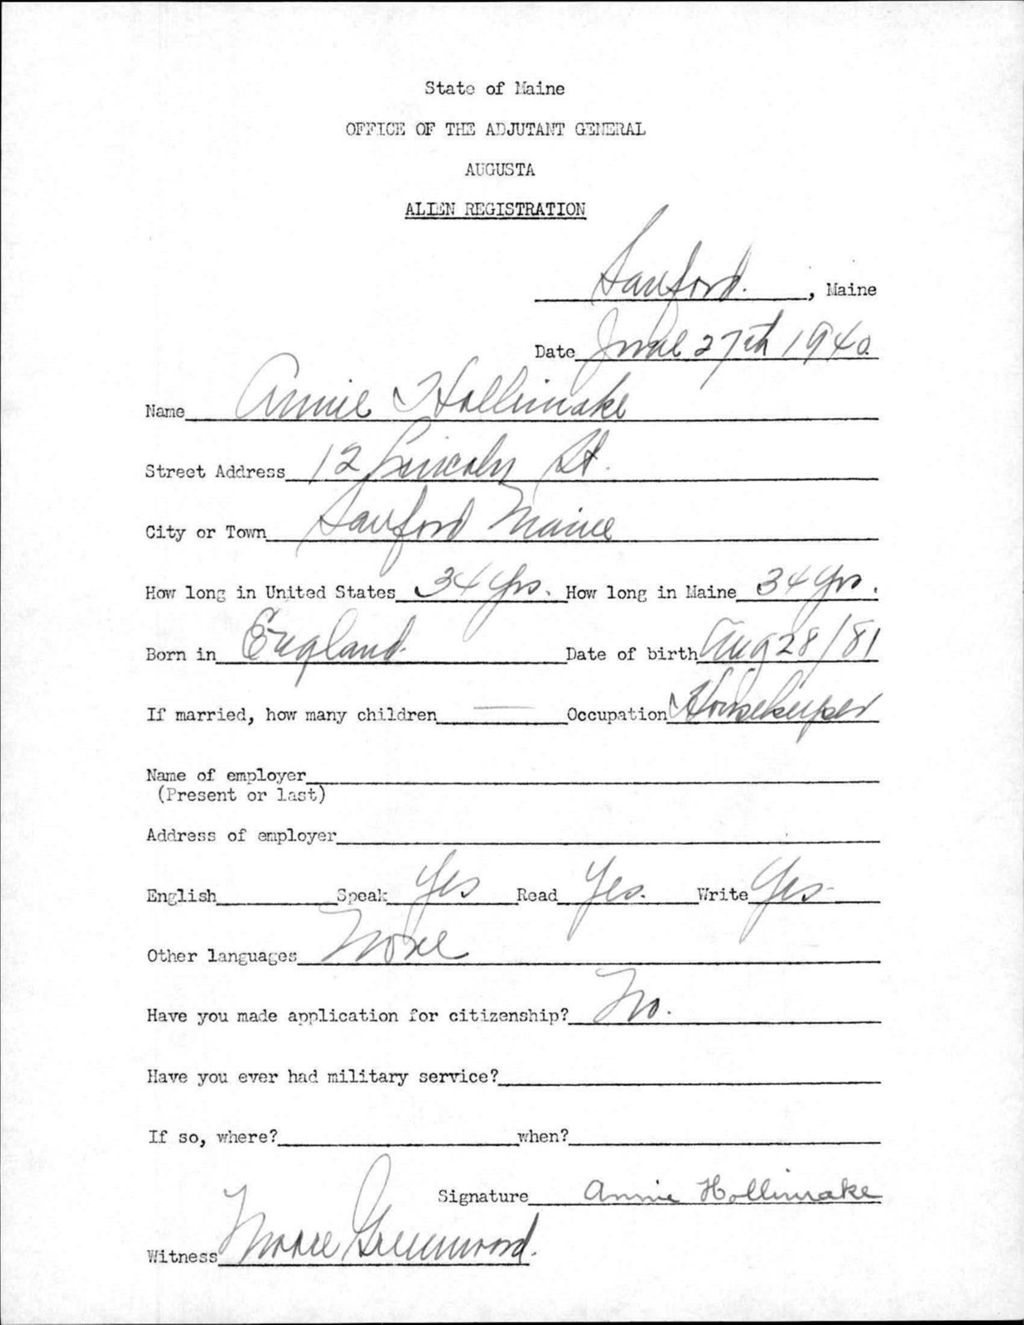 State of Maine
OFFICE OF THE ADJUTANT GENERAL
AUGUSTA
ALIEN REGISTRATION
Sanford. , Maine
Date June 27th 1940.
Name Annie Hollinrake
Street Address 12 Lincoln St.
City or Town Sanford Maine
How long in United States 34 yrs. How long in Maine 34 yrs.
Born in England Date of birth Aug 28/81
If married, how many children — Occupation Housekeeper
Name of employer
(Present or last)
Address of employer
English Speak Yes Read Yes. Write Yes-
Other languages None
Have you made application for citizenship? No.
Have you ever had military service?
If so, where? when?
Signature Annie Hollinrake
Witness Moore Greenwood.